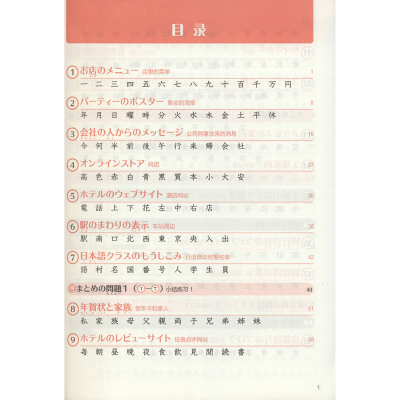 目录
① お店のメニュー 店里的菜单 1
一 二 三 四 五 六 七 八 九 十 百 千 万 円
② パーティーのポスター 聚会的海报 8
年 月 日 曜 時 分 火 水 木 金 土 平 休
③ 会社の人からのメッセージ 公司同事发来的消息 16
今 何 半 前 後 午 行 来 帰 会 社
④ オンラインストア 网店 23
高 色 赤 白 青 黒 質 本 小 大 安
⑤ ホテルのウェブサイト 酒店网站 30
電 話 上 下 花 左 中 右 店
⑥ 駅のまわりの表示 车站周边 36
駅 南 口 北 西 東 京 央 入 出
⑦ 日本語クラスのもうしこみ 42
語 村 名 国 番 号 人 学 生 員
まとめの問題1（①-⑦）小结练习1 49
⑧ 年賀状と家族 贺年卡和家人 51
私 家 族 母 父 親 両 子 兄 弟 姉 妹
⑨ ホテルのレビューサイト 住宿点评网站 58
毎 朝 昼 晩 夜 食 飲 見 聞 読 書
1